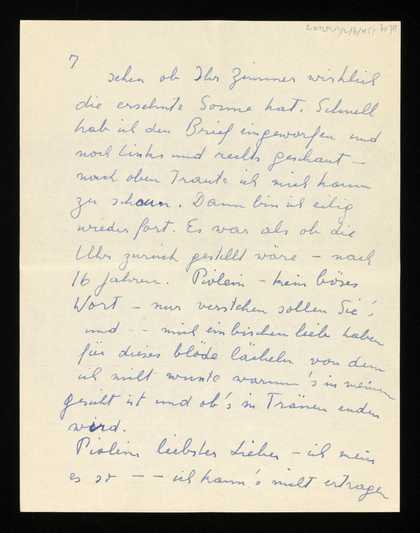 7
sehen ob Ihr Zimmer wirklich
die ersehnte Sonne hat. Schnell
hab ich den Brief eingeworfen und
noch links und rechts geschaut –
nach oben traute ich mich kaum
zu schaun. Dann bin ich eilig
wieder fort. Es war als ob die
Uhr zurück gestellt wäre – nach
16 Jahren. – kein böses
Wort – nur verstehen sollen Sie's
und -- mich ein bischen lieb haben
für dieses blöde lächeln von dem
ich nicht wusste warum's in meinem
Gesicht ist und ob's in Tränen enden
wird.
liebster Lieber – ich mein
es so -- ich kann's nicht ertragen